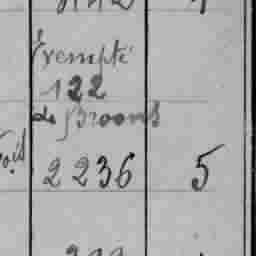 Exempté
122
de Broons
2236 5